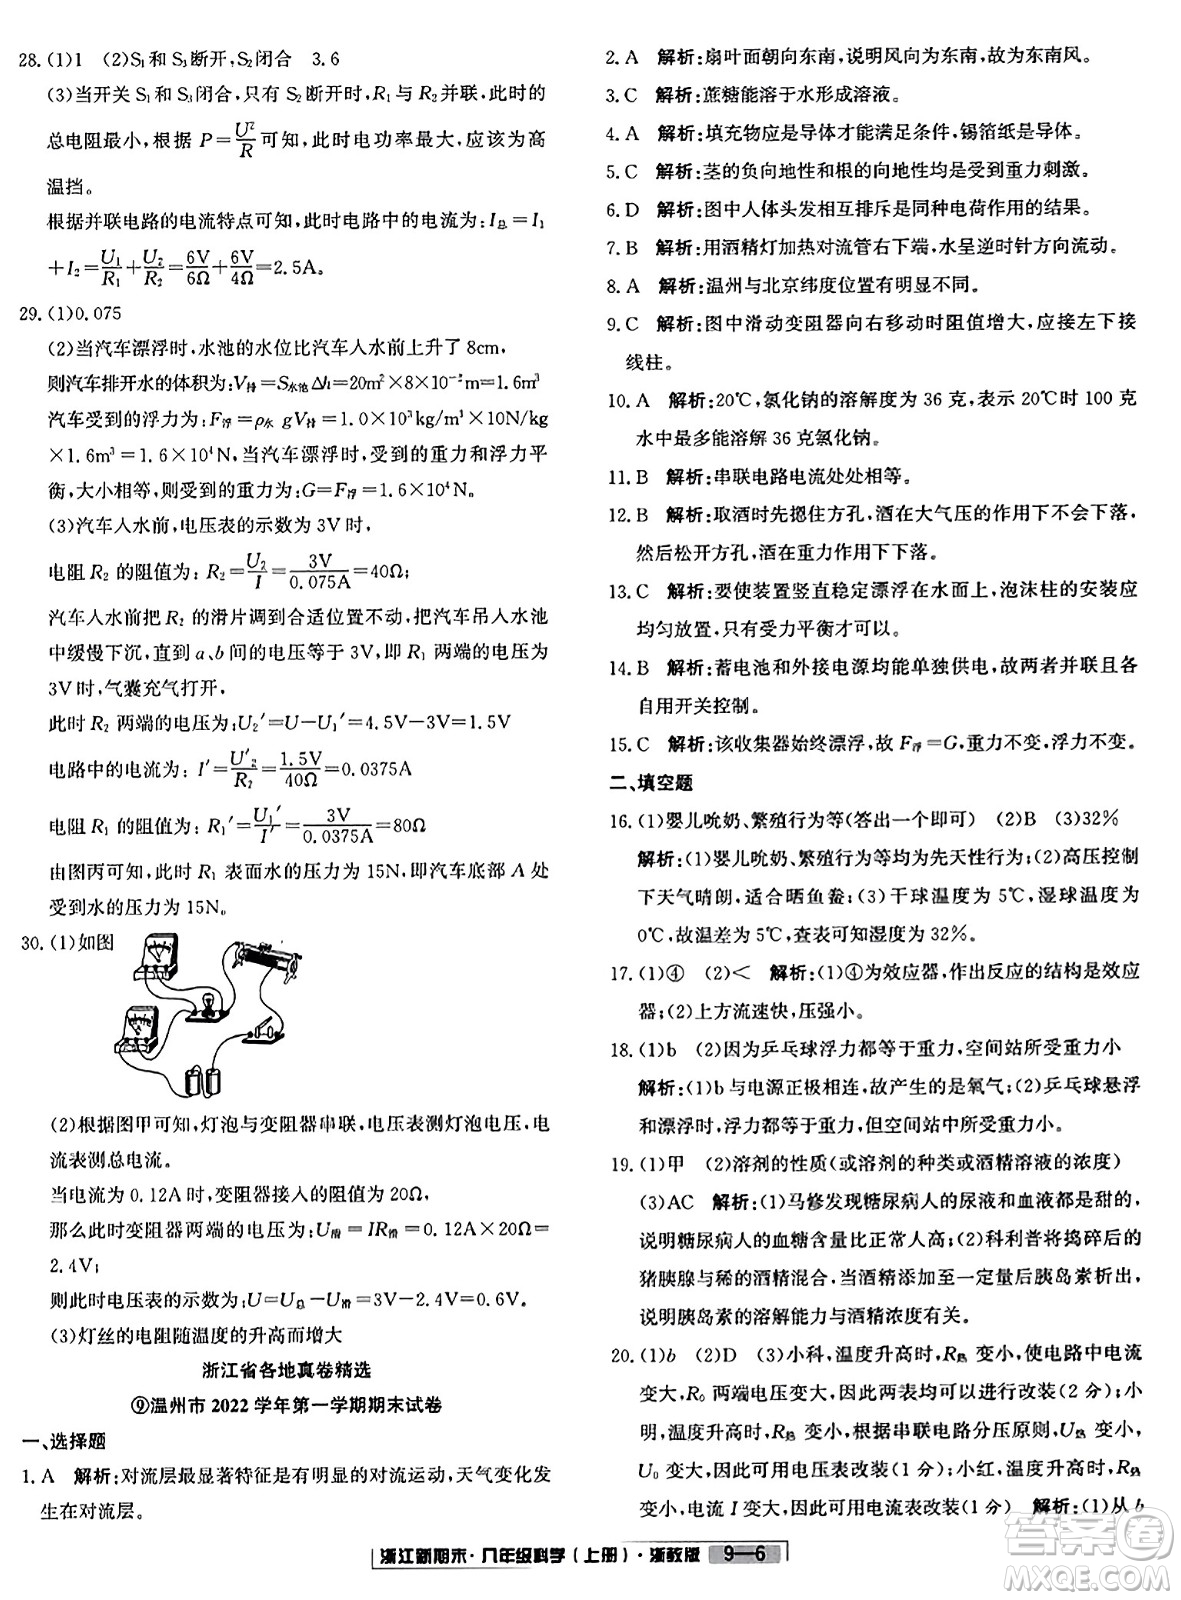 28. (1)1 (2)S₁和S₃断开,S₂闭合 3.6
(3)当开关S₁和S₃闭合,只有S₂断开时,R₁与R₂并联,此时的
总电阻最小,根据 P=U²/R 可知,此时电功率最大,应该为高
温挡。
根据并联电路的电流特点可知,此时电路中的电流为:I总=I₁
+I₂=U₁/R₁+U₂/R₂=6V/6Ω+6V/4Ω=2.5A。
29. (1)0.075
(2)当汽车漂浮时,水池的水位比汽车入水前上升了8cm,
则汽车排开水的体积为:V排=S水池Δh=20m²×8×10⁻²m=1.6m³
汽车受到的浮力为:F浮=ρ水gV排=1.0×10³kg/m³×10N/kg
×1.6m³=1.6×10⁴N,当汽车漂浮时,受到的重力和浮力平
衡,大小相等,则受到的重力为:G=F浮=1.6×10⁴N。
(3)汽车入水前,电压表的示数为3V时,
电阻R₂的阻值为:R₂=U₂/I=3V/0.075A=40Ω;
汽车入水前把R₂的滑片调到合适位置不动,把汽车吊入水池
中缓慢下沉,直到a、b间的电压等于3V,即R₁两端的电压为
3V时,气囊充气打开,
此时R₂两端的电压为:U₂′=U-U₁′=4.5V-3V=1.5V
电路中的电流为:I′=U′₂/R₂=1.5V/40Ω=0.0375A
电阻R₁的阻值为:R₁′=U₁′/I′=3V/0.0375A=80Ω
由图丙可知,此时R₁表面水的压力为15N,即汽车底部A处
受到水的压力为15N。
30. (1)如图
(2)根据图甲可知,灯泡与变阻器串联,电压表测灯泡电压,电
流表测总电流。
当电流为0.12A时,变阻器接入的阻值为20Ω,
那么此时变阻器两端的电压为:U滑=IR滑=0.12A×20Ω=
2.4V;
则此时电压表的示数为:U=U总-U滑=3V-2.4V=0.6V。
(3)灯丝的电阻随温度的升高而增大
浙江省各地真卷精选
⑨温州市2022学年第一学期期末试卷
一、选择题
1. A 解析:对流层最显著特征是有明显的对流运动,天气变化发
生在对流层。
2. A 解析:扇叶面朝向东南,说明风向为东南,故为东南风。
3. C 解析:蔗糖能溶于水形成溶液。
4. A 解析:填充物应是导体才能满足条件,锡箔纸是导体。
5. C 解析:茎的负向地性和根的向地性均是受到重力刺激。
6. D 解析:图中人体头发相互排斥是同种电荷作用的结果。
7. B 解析:用酒精灯加热对流管右下端,水呈逆时针方向流动。
8. A 解析:温州与北京纬度位置有明显差异。
9. C 解析:图中滑动变阻器向右移动时阻值增大,应接左下接
线柱。
10. A 解析:20℃,氯化钠的溶解度为36克,表示20℃时100克
水中最多能溶解36克氯化钠。
11. B 解析:串联电路电流处处相等。
12. B 解析:取酒时先摁住方孔,酒在大气压的作用下不会下落,
然后松开方孔,酒在重力作用下下落。
13. C 解析:要使装置竖直稳定漂浮在水面上,泡沫柱的安装应
均匀放置,只有受力平衡才可以。
14. B 解析:蓄电池和外接电源均能单独供电,故两者并联且各
自用开关控制。
15. C 解析:该收集器始终漂浮,故F浮=G,重力不变,浮力不变。
二、填空题
16. (1)婴儿吮奶、繁殖行为等(答出一个即可) (2)B (3)32%
解析:(1)婴儿吮奶、繁殖行为等均为先天性行为;(2)高压控制
下天气晴朗,适合晒鱼鲞;(3)干球温度为5℃,湿球温度为
0℃,故温差为5℃,查表可知湿度为32%。
17. (1)④ (2)< 解析:(1)④为效应器,作出反应的结构是效应
器;(2)上方流速快,压强小。
18. (1)b (2)因为乒乓球浮力都等于重力,空间站所受重力小
解析:(1)b与电源正极相连,故产生的是氧气;(2)乒乓球悬浮
和漂浮时,浮力都等于重力,故空间站中所受浮力小。
19. (1)甲 (2)溶剂的性质(或溶剂的种类或酒精溶液的浓度)
(3)AC 解析:(1)马修发现糖尿病人的尿液和血液都是甜的,
说明糖尿病人的血糖含量比正常人高;(2)科利普将捣碎后的
猪胰腺与稀的酒精混合,当酒精加至一定量后胰岛素析出,
说明胰岛素的溶解能力与酒精浓度有关。
20. (1)b (2)D (3)小科,温度升高,R热变小,电路中电流
变大,R₀两端电压变大,因此可用电压表进行改装(2分);小
明,温度升高,R热变小,根据串联电路分压原则,U热变小,
U₀变大,因此可用电压表改装(2分);小红,温度升高,R热
变小,电流I变大,因此可用电流表改装(1分) 解析:(1)从b
浙江新期末·八年级科学(上册)·浙教版 9—6
答案圈
MXQE.COM